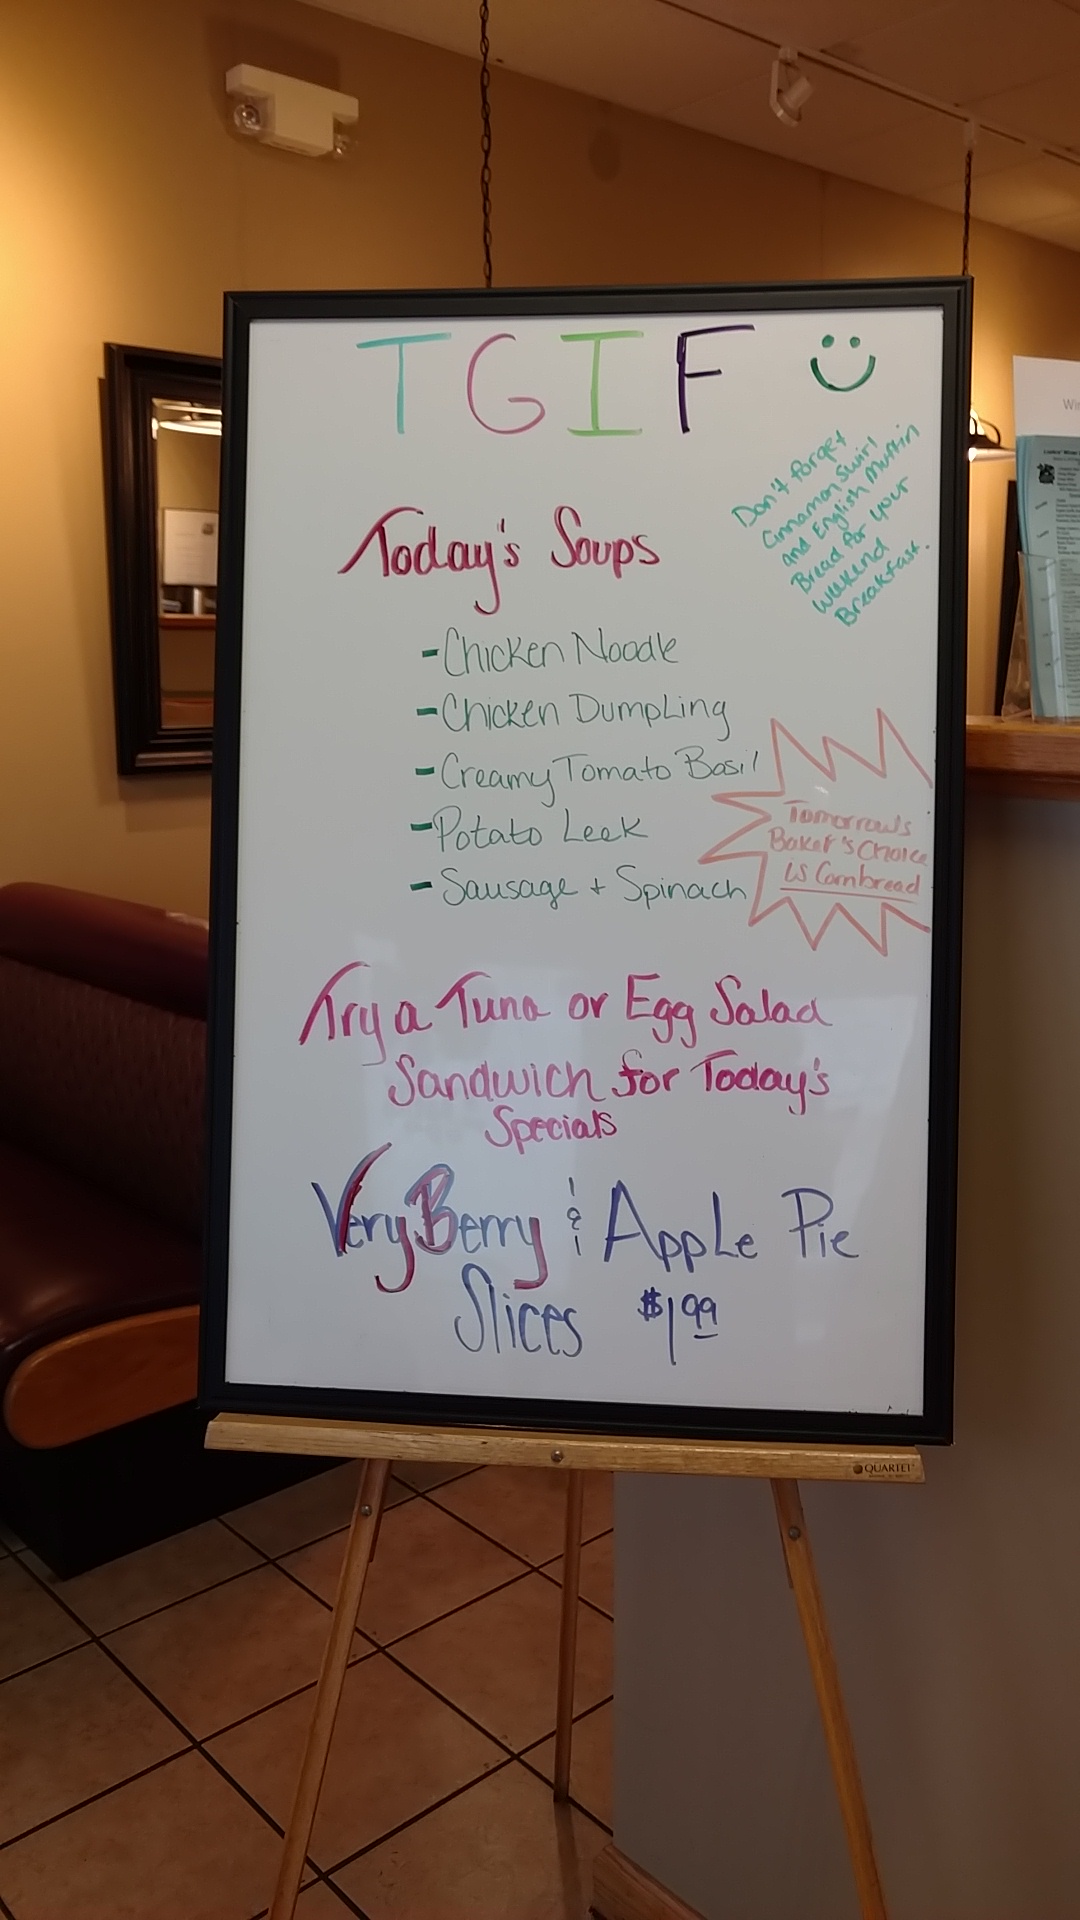 TGIF
Don't forget
Cinnamon Swirl
and English Muffin
Bread for your
weekend
Breakfast.
Today's Soups
- Chicken Noodle
- Chicken Dumpling
- Creamy Tomato Basil
- Potato Leek
- Sausage + Spinach
Tomorrow's
Baker's Choice
is Cornbread
Try a Tuna or Egg Salad
Sandwich for Today's
Specials
Very Berry & Apple Pie
Slices $1.99
QUARTET